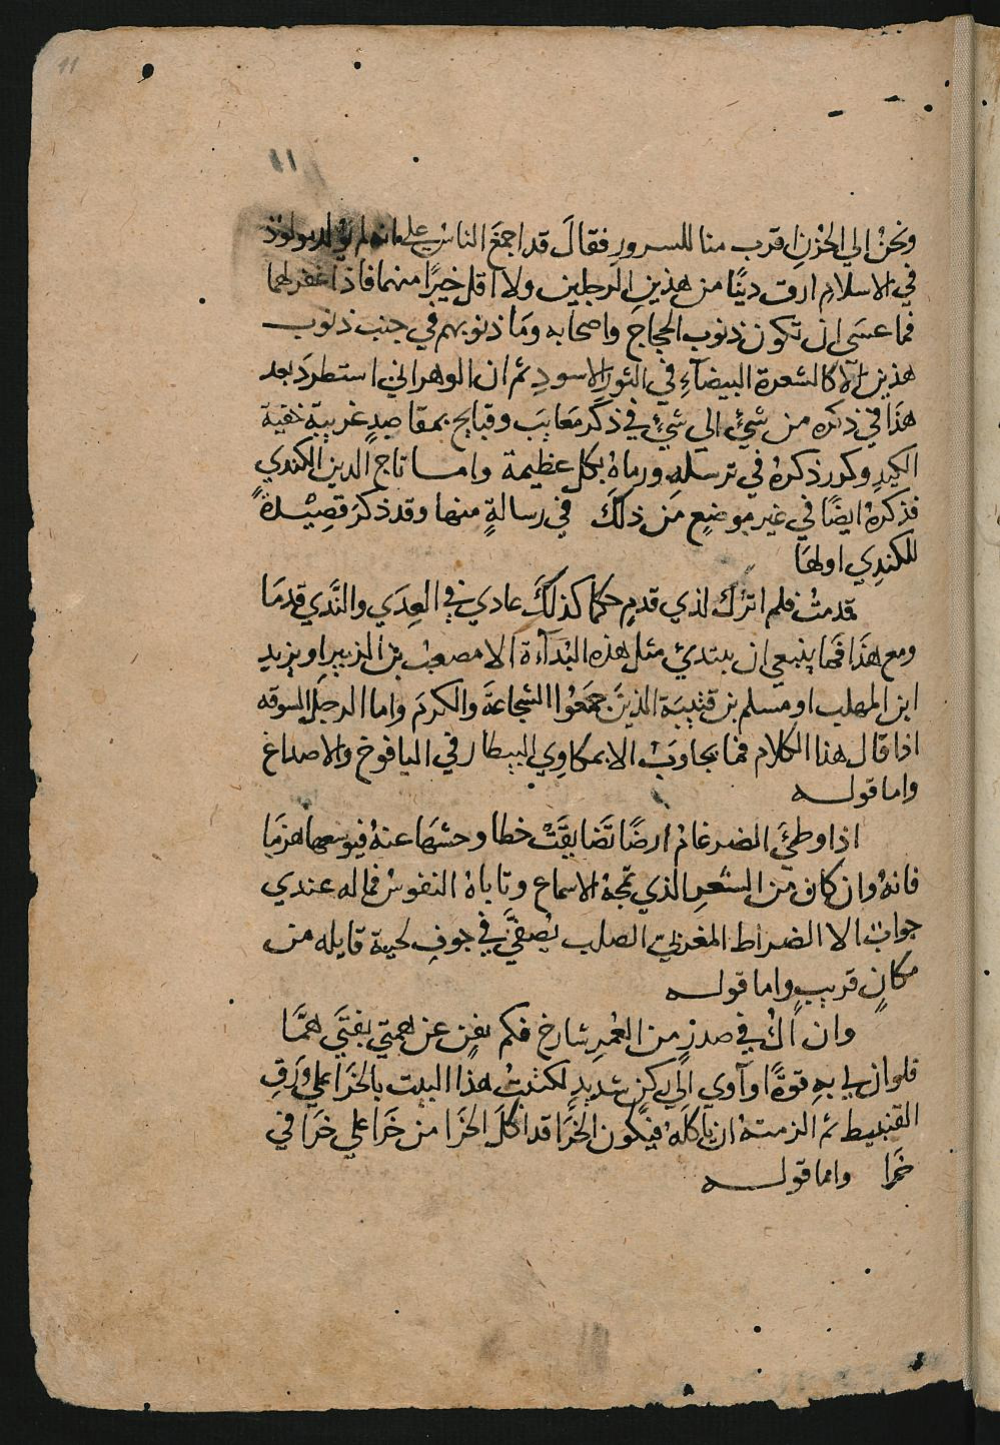 11
١١
ونحنُ الي الحُزنِ اقرب منا للسرورِ فقالَ قد اجمعَ الناسُ علي انه لم يولد مولود
في الاسلام ارق دينًا من هذينِ الرجلين ولا اقل خيرًا منهما فاذا غفر لهما
فما عسَى ان تكون ذنوب الحجاج واصحابه ومَا ذنوبهم في جنب ذنوب
هذين الا كالشعرة البيضآءِ في الثورِ الاسودِ ثم ان الوهراني استطردَ بعد
هذَا في ذكره من شيءٍ الي شيءٍ في ذكر مَعايبَ وقبايح بمقاصدٍ غريبة خفية
الكيدِ وكرر ذكرهُ في ترسلهِ ورماهُ بكل عظيمة واما تاج الدين الكندي
فذكرهُ ايضًا في غير موضعٍ مَن ذلكَ في رسالةٍ منها وقد ذكرَ قصِيْدةً
للكندِي اولهَا
قدمتُ فلم اترك لذي قدمٍ حكما كذلكَ عادي في العِدَي والنَّدي قدمَا
ومع هذَا فما ينبغي ان يبتدئ مثل هذه البُدآءة الا مصعبُ بن الزبيرِ او يزيد
ابن المهلب او مسلم بن قتيبَة الذينَ جمَعُوا الشجاعَةَ والكرمَ واما الرجل السوقه
اذا قال هذا الكلام فما يجاوبُ الا بمكاوِي البيطار في اليافوخ والاصداغ
واما قوله
اذا وطئَ الضرغامُ ارضًا تَضايقَتْ خطا وحشهَا عنهُ فيوسعها هزمَا
فانهُ وان كان من الشعرِ الذي تمجهُ الاسماع وتاباهُ النفوسُ فماله عندي
جوابٌ الا الضراط المغربي الصلب يُصفَّى في جوفِ لحية قايله من
مكانٍ قريبٍ واما قوله
وان اكُ في صدرٍ من العُمْرِ شارخ فكم يفنٍ عن همتي بفتَي همَّا
فلو ان لي بهِ قوةً او آوي الَي ركنٍ شديدٍ لكتبتُ هذا البيت بالخَرَا علي ورَقِ
القنبيط ثم الزمته ان ياكلَهُ فيكون الخَرَا قد اكلَ الخَرَا من خَرَا علي خَرَا في
خَرَا واما قوله